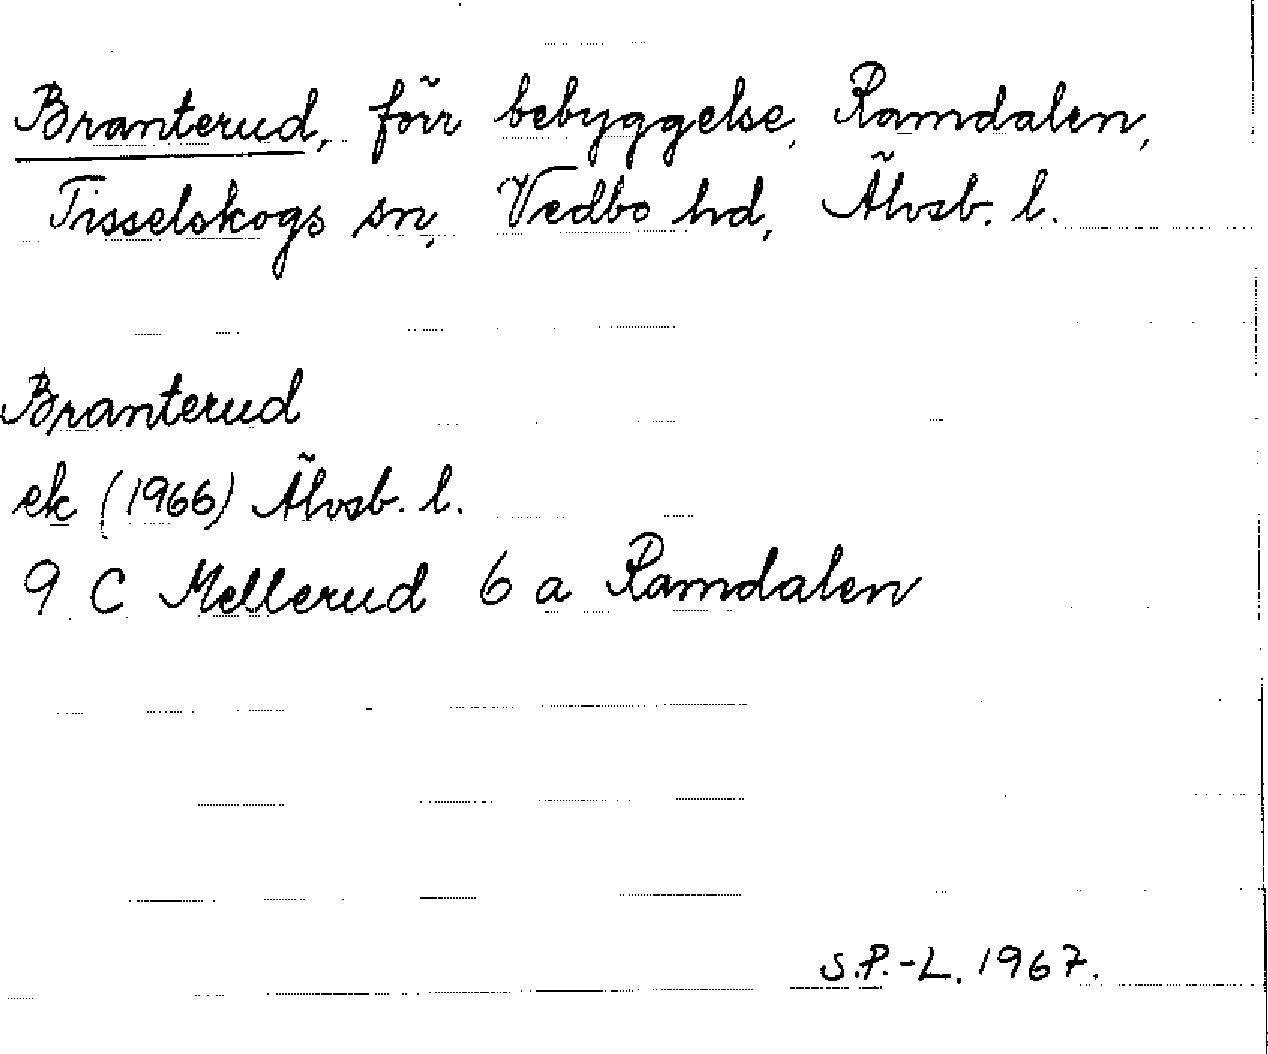 Branterud, förr bebyggelse, Ramdalen,
Tisselskogs sn, Vedbo hd, Älvsb. l.
Branterud
ek (1966) Älvsb. l.
9 C Mellerud 6 a Ramdalen
S.P.-L. 1967.